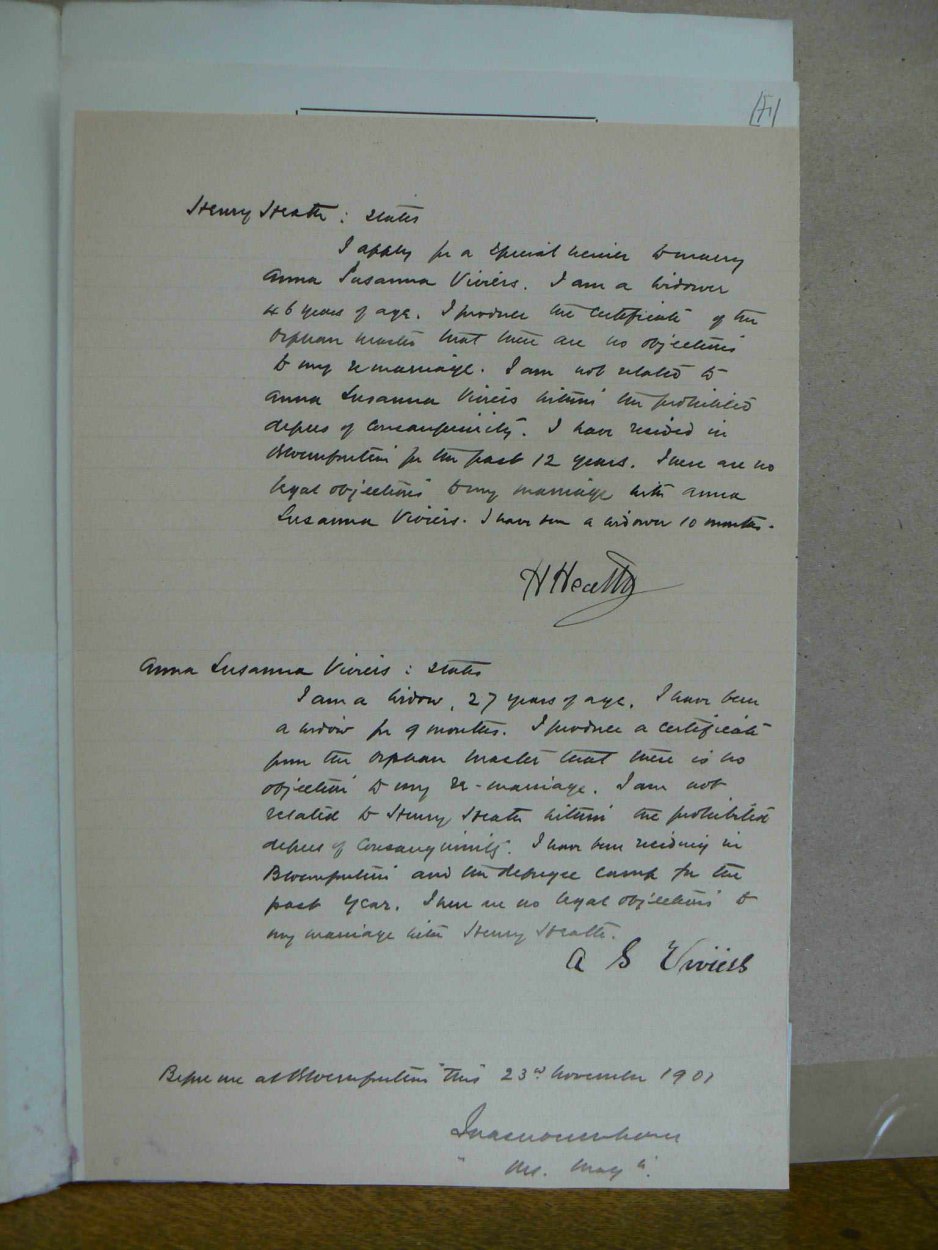 Henry Heath : states
I apply for a special licence to marry
Anna Susanna Viviers. I am a widower
46 years of age. I produce the certificate of the
Orphan Master that there are no objections
to my remarriage. I am not related to
Anna Susanna Viviers within the prohibited
degrees of consanguinity. I have resided in
Bloemfontein for the past 12 years. There are no
legal objections to my marriage with Anna
Susanna Viviers. I have been a widower 10 months.
H Heath
Anna Susanna Viviers : states
I am a widow, 27 years of age. I have been
a widow for 9 months. I produce a certificate
from the Orphan Master that there is no
objection to my re-marriage. I am not
related to Henry Heath within the prohibited
degrees of consanguinity. I have been residing in
Bloemfontein and the refugee camp for the
past year. There are no legal objections to
my marriage with Henry Heath.
A S Viviers
Before me at Bloemfontein this 23rd November 1901